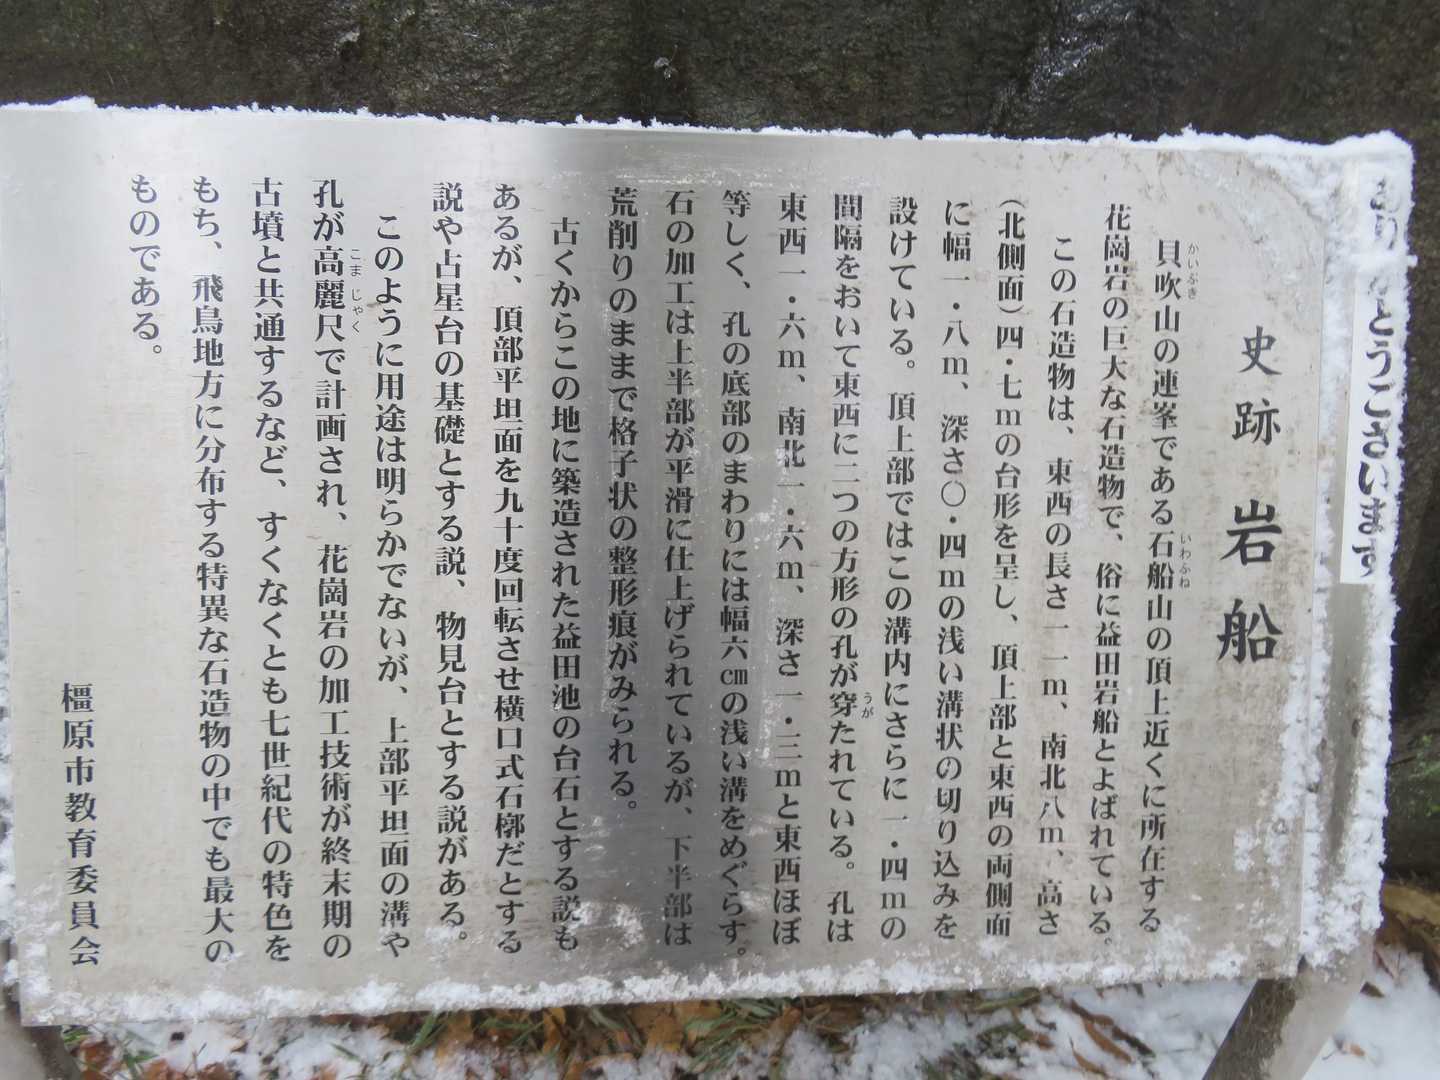 ありがとうございます
史跡 岩船
貝吹山の連峯である石船山の頂上近くに所在する
かいぶき
いわふね
花崗岩の巨大な石造物で、俗に益田岩船とよばれている。
この石造物は、東西の長さ一一m、南北八m、高さ
(北側面)四・七mの台形を呈し、頂上部と東西の両側面
に幅一・八m、深さ〇・四mの浅い溝状の切り込みを
設けている。頂上部ではこの溝内にさらに一・四mの
間隔をおいて東西に二つの方形の孔が穿たれている。孔は
うが
東西一・六m、南北一・六m、深さ一・三mと東西ほぼ
等しく、孔の底部のまわりには幅六cmの浅い溝をめぐらす。
石の加工は上半部が平滑に仕上げられているが、下半部は
荒削りのままで格子状の整形痕がみられる。
古くからこの地に築造された益田池の台石とする説も
あるが、頂部平坦面を九十度回転させ横口式石槨だとする
説や占星台の基礎とする説、物見台とする説がある。
このように用途は明らかでないが、上部平坦面の溝や
孔が高麗尺で計画され、花崗岩の加工技術が終末期の
こま じゃく
古墳と共通するなど、すくなくとも七世紀代の特色を
もち、飛鳥地方に分布する特異な石造物の中でも最大の
ものである。
橿原市教育委員会